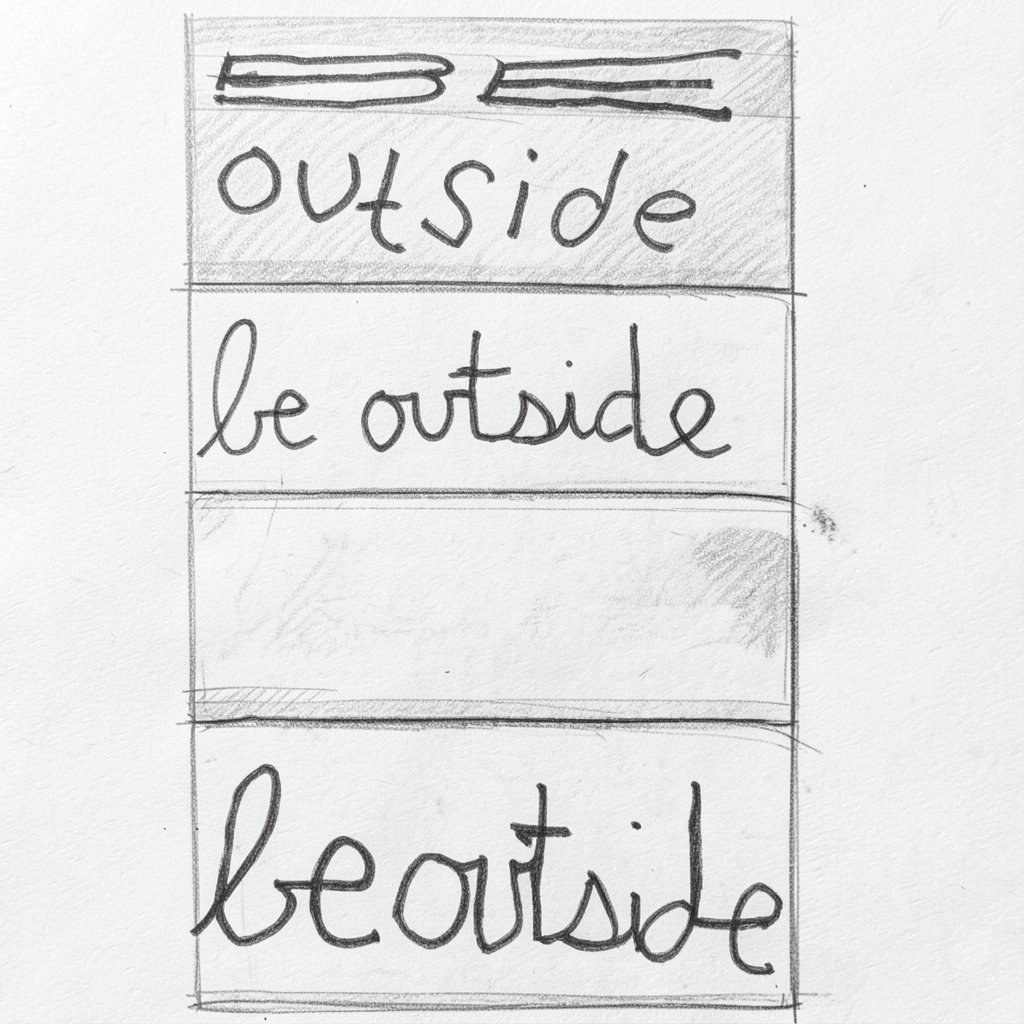 BE
outside
be outside
beoutside